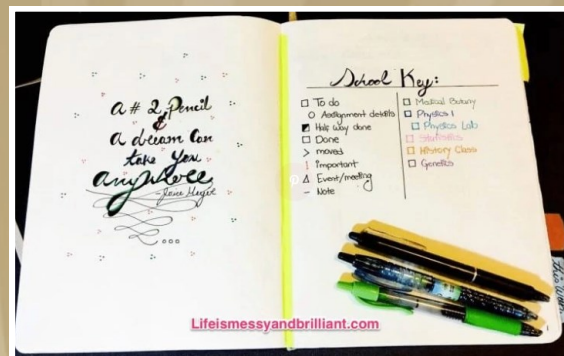 a # 2 Pencil
&
a dream Can
take You
anywhere
- Joyce Meyer
School Key:
To do
Assignment details
Half way done
Done
> moved
! important
Event/meeting
- Note
Medical Botany
Physics 1
Physics Lab
Statistics
History Class
Genetics
Lifeismessyandbrilliant.com